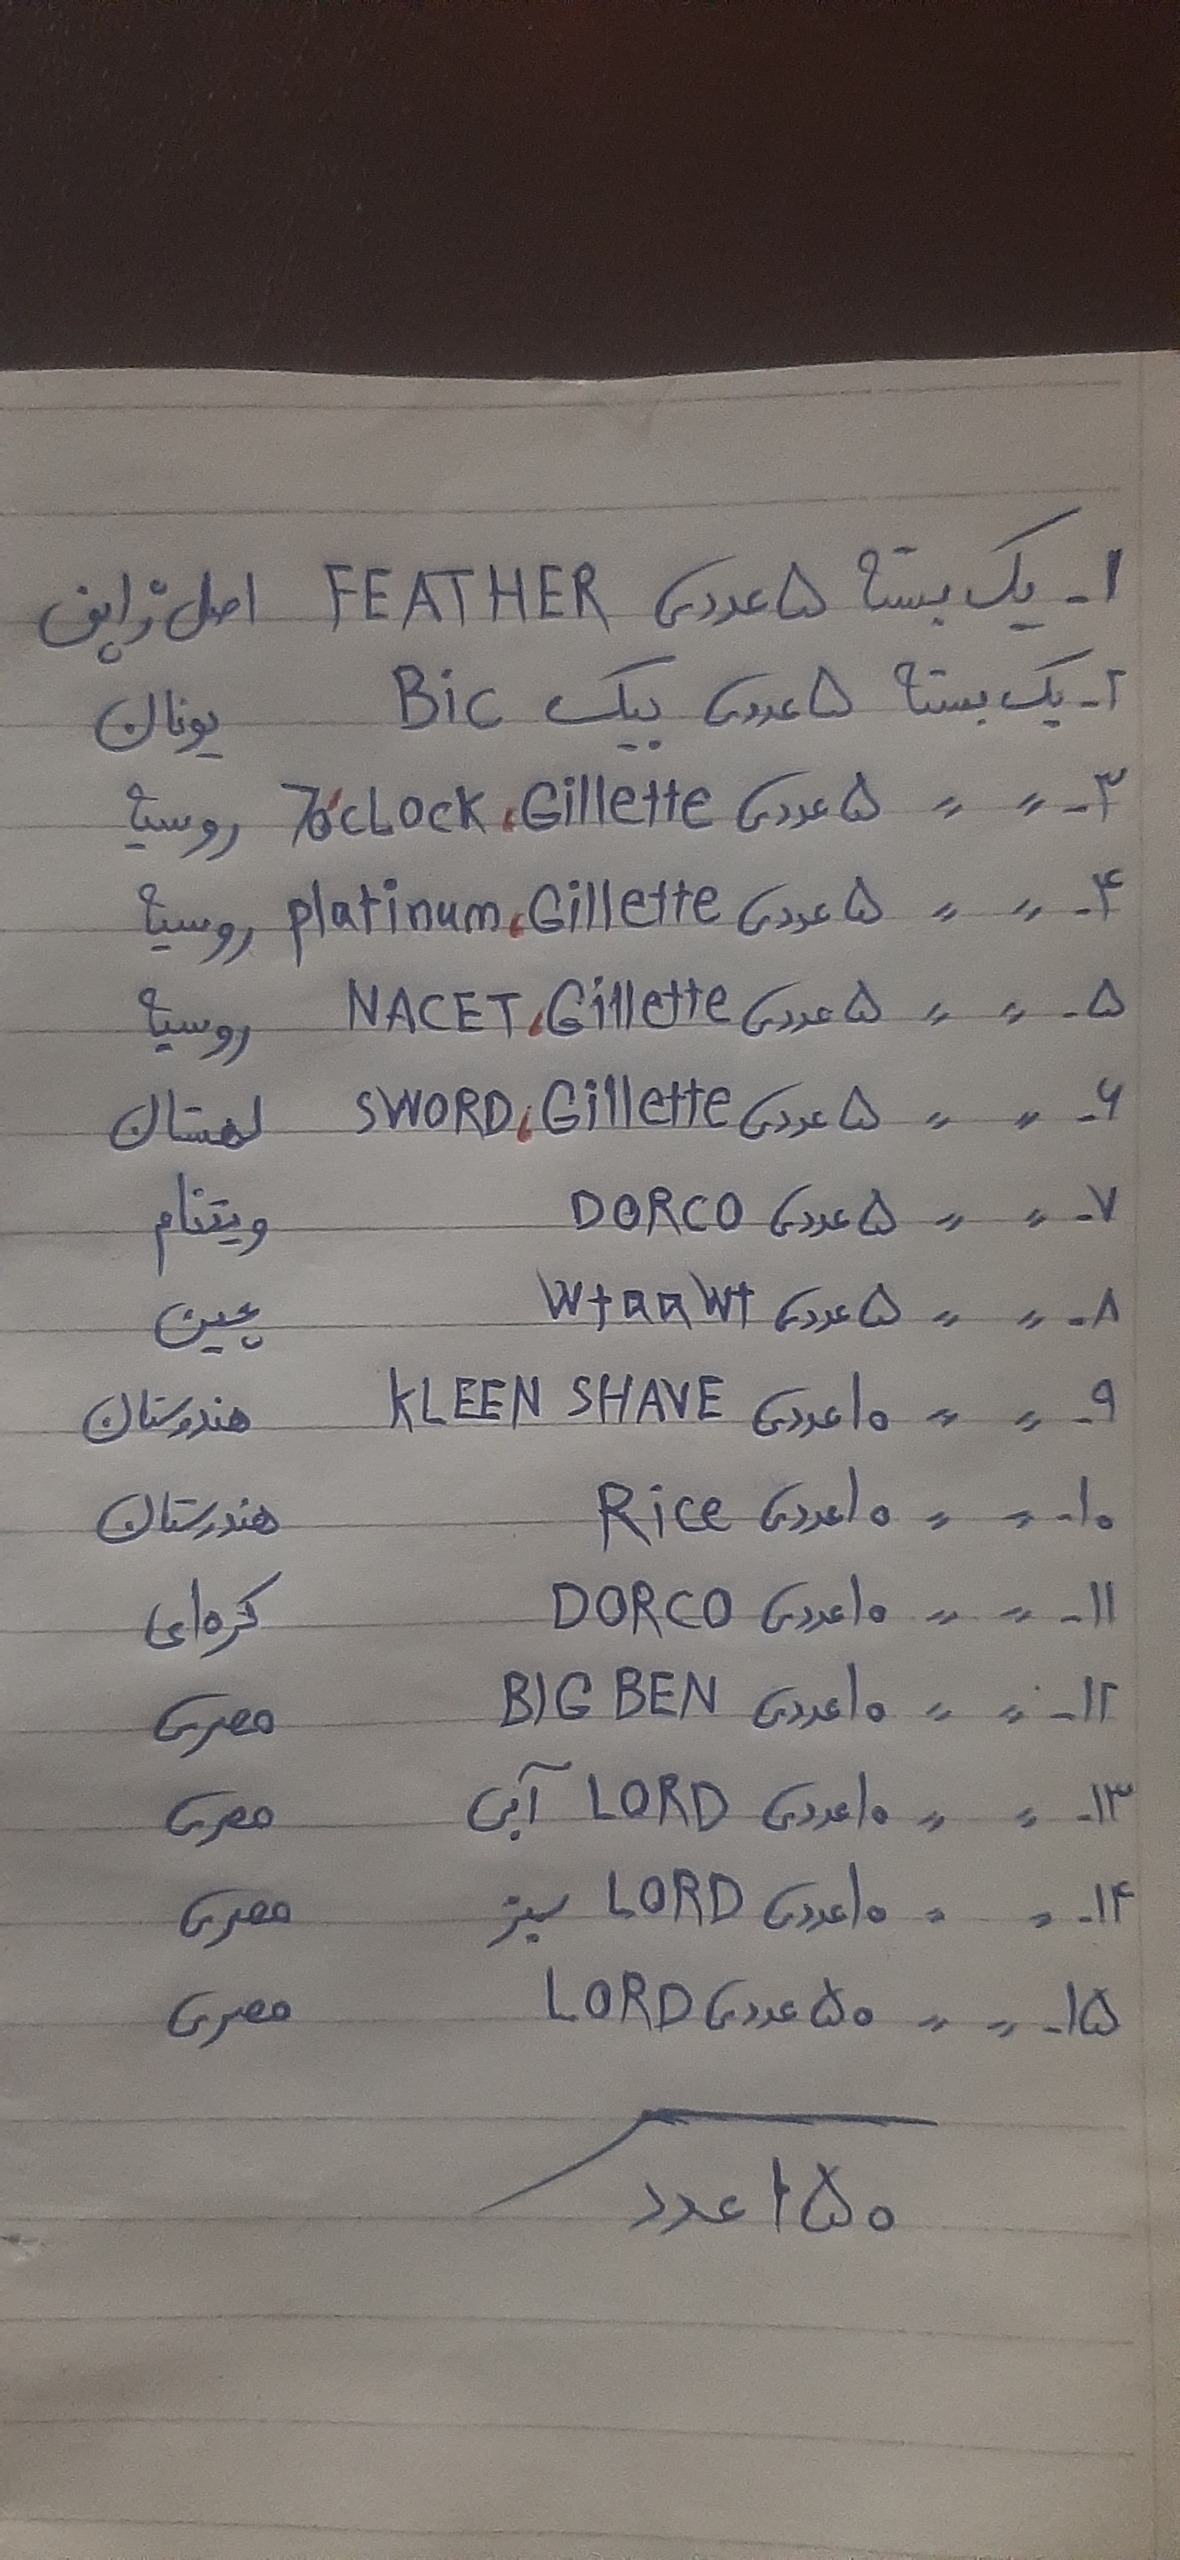 ۱- یک بسته ۵ عددی FEATHER اصل ژاپن
۲- یک بسته ۵ عددی بیک Bic یونان
۳- 〃 〃 ۵ عددی Gillette، 7o'cLock روسیه
۴- 〃 〃 ۵ عددی Gillette، platinum روسیه
۵- 〃 〃 ۵ عددی Gillette، NACET روسیه
۶- 〃 〃 ۵ عددی Gillette، SWORD لهستان
۷- 〃 〃 ۵ عددی DORCO ویتنام
۸- 〃 〃 ۵ عددی چین
۹- 〃 〃 ۱۰ عددی KLEEN SHAVE هندوستان
۱۰- 〃 〃 ۱۰ عددی Rice هندوستان
۱۱- 〃 〃 ۱۰ عددی DORCO کره‌ای
۱۲- 〃 〃 ۱۰ عددی BIG BEN مصری
۱۳- 〃 〃 ۱۰ عددی LORD آبی مصری
۱۴- 〃 〃 ۱۰ عددی LORD سبز مصری
۱۵- 〃 〃 ۵۰ عددی LORD مصری
۱۵۰ عدد